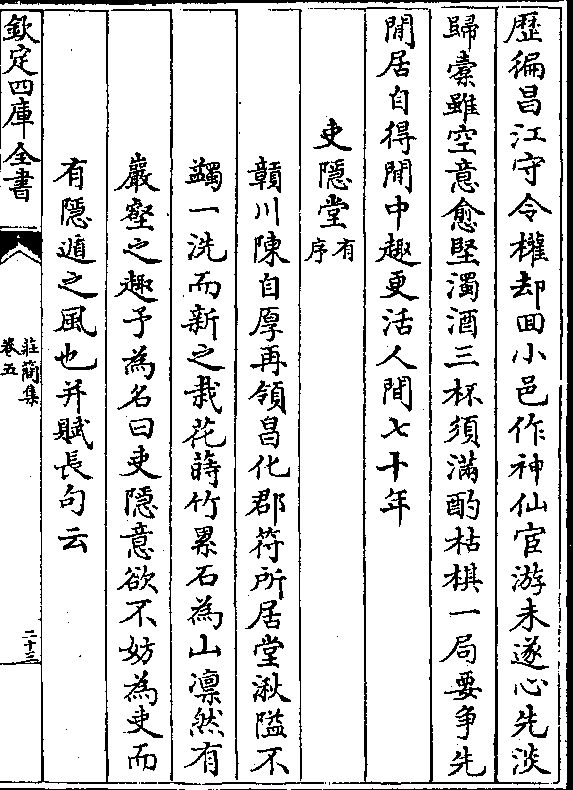 歴徧昌江守令權却回小邑作神仙宦游未遂心先淡
歸橐雖空意愈堅濁酒三杯須滿酌枯棋一局要争先
閒居自得閒中趣更活人間七十年
吏隱堂有序
贛川陳自厚再領昌化郡符所居堂湫隘不
蠲一洗而新之栽花蒔竹累石為山凛然有
巖壑之趣予為名曰吏隱意欲不妨為吏而
有隱遁之風也并賦長句云
欽定四庫全書
莊簡集
卷五
二十三